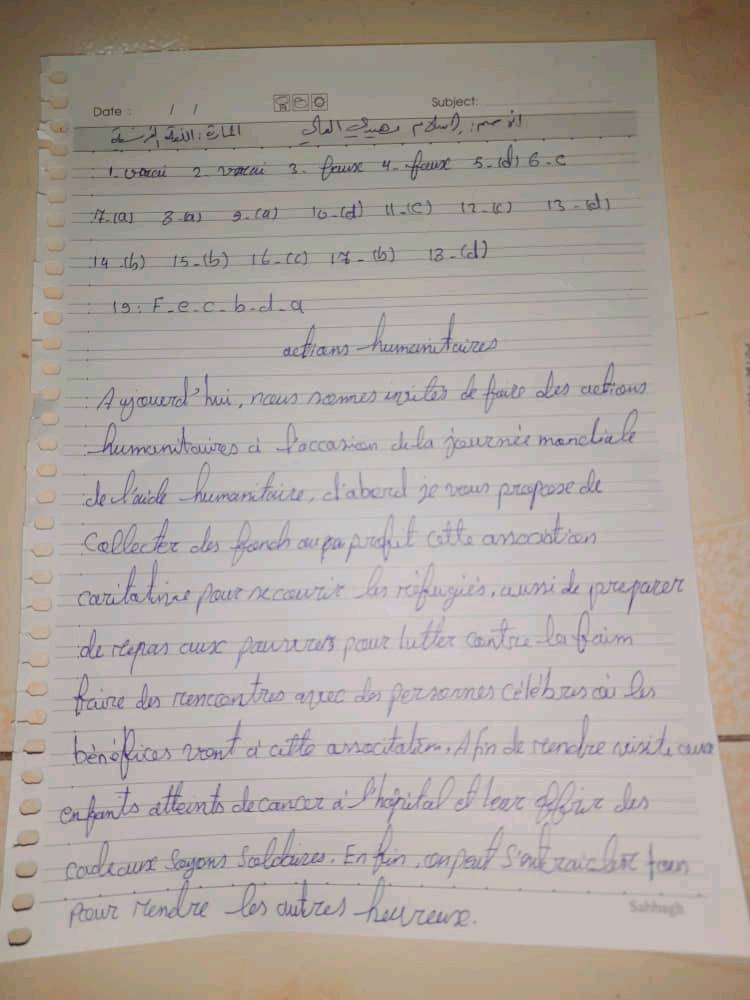 Date : / / Subject:
الإسم: إسلام مهيدي العالي المادة: اللغة الفرنسية
1. vrai 2. vrai 3. faux 4. faux 5. (d) 6. c
7. (a) 8. (a) 9. (a) 10. (d) 11. (c) 12. (c) 13. (d)
14. (b) 15. (b) 16. (c) 17. (b) 18. (d)
19: F. e. c. b. d. a
actions humanitaires
Aujourd'hui, nous sommes invités de faire des actions
humanitaires à l'occasion de la journée mondiale
de l'aide humanitaire, d'abord je vous propose de
collecter des profit cette association
caritative pour secourir les réfugiés, aussi de preparer
de repas aux pauvres pour lutter contre la faim
faire des rencontres avec des personnes célébres où les
bénéfices vont à cette associtation. Afin de rendre visite aux
enfants atteints de cancer à l'hôpital et leur offrir des
cadeaux Soyons Solidaires. En fin, on peut
pour rendre les autres heureux.
Sabbagh